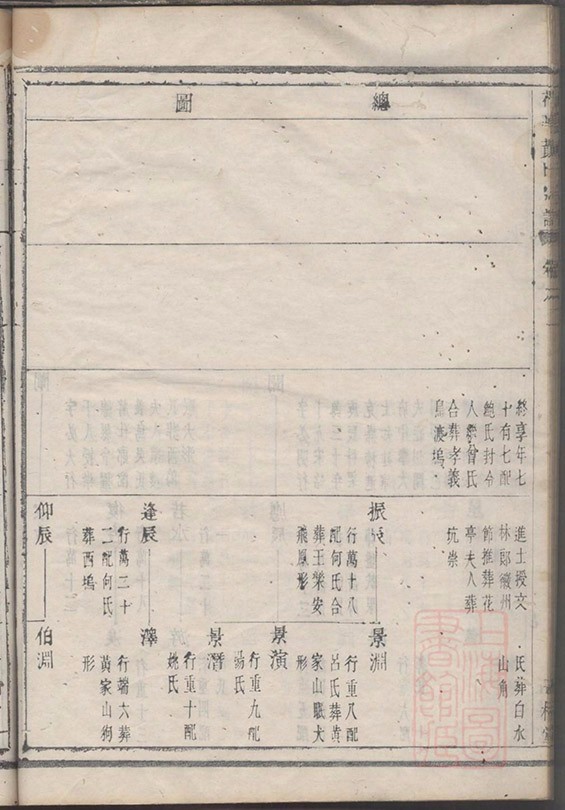 總圖
終享年七
十有七配
鮑氏封令
人繼曾氏
合葬孝義
烏波塢
進士授文
林郎徽州
節推葬花
亭夫人葬
坑崇
氏葬白水
山角
振辰
行萬十八
配何氏合
葬王榮安
飛鳳形
景淵
行重八配
呂氏葬黃
家山眠犬
形
景演
行重九配
楊氏
景潛
行重十配
姚氏
逢辰
行萬二十
三配何氏
葬西塢
澤
行端六葬
黃家山狗
形
仰辰
伯淵
上海圖書館藏